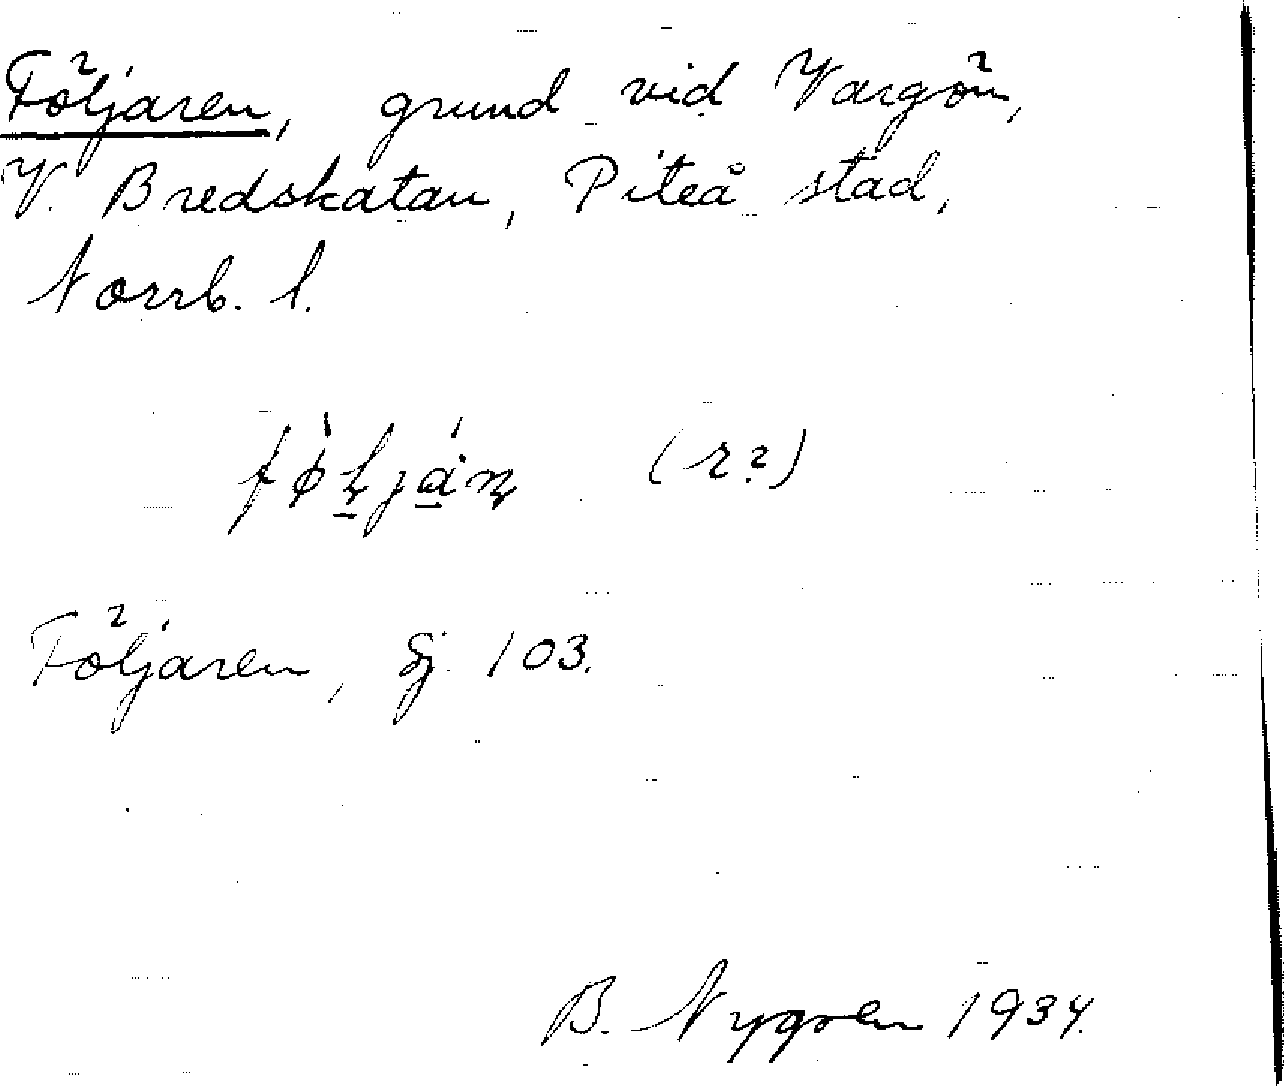 Följaren, grund vid Vargön,
V. Bredskatan, Piteå stad,
Norrb. l.
(r?)
Följaren, Sj. 103.
B. Nygren 1934.